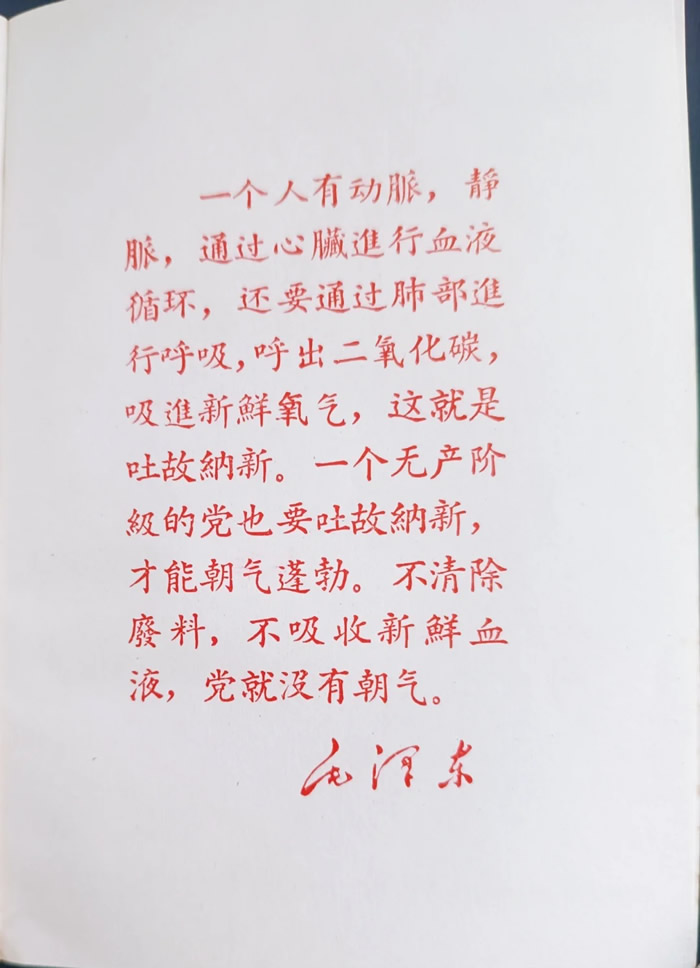 一个人有动脈，靜
脈，通过心臟進行血液
循环，还要通过肺部進
行呼吸，呼出二氧化碳，
吸進新鮮氧气，这就是
吐故納新。一个无产阶
級的党也要吐故納新，
才能朝气蓬勃。不清除
廢料，不吸收新鮮血
液，党就没有朝气。
毛泽东